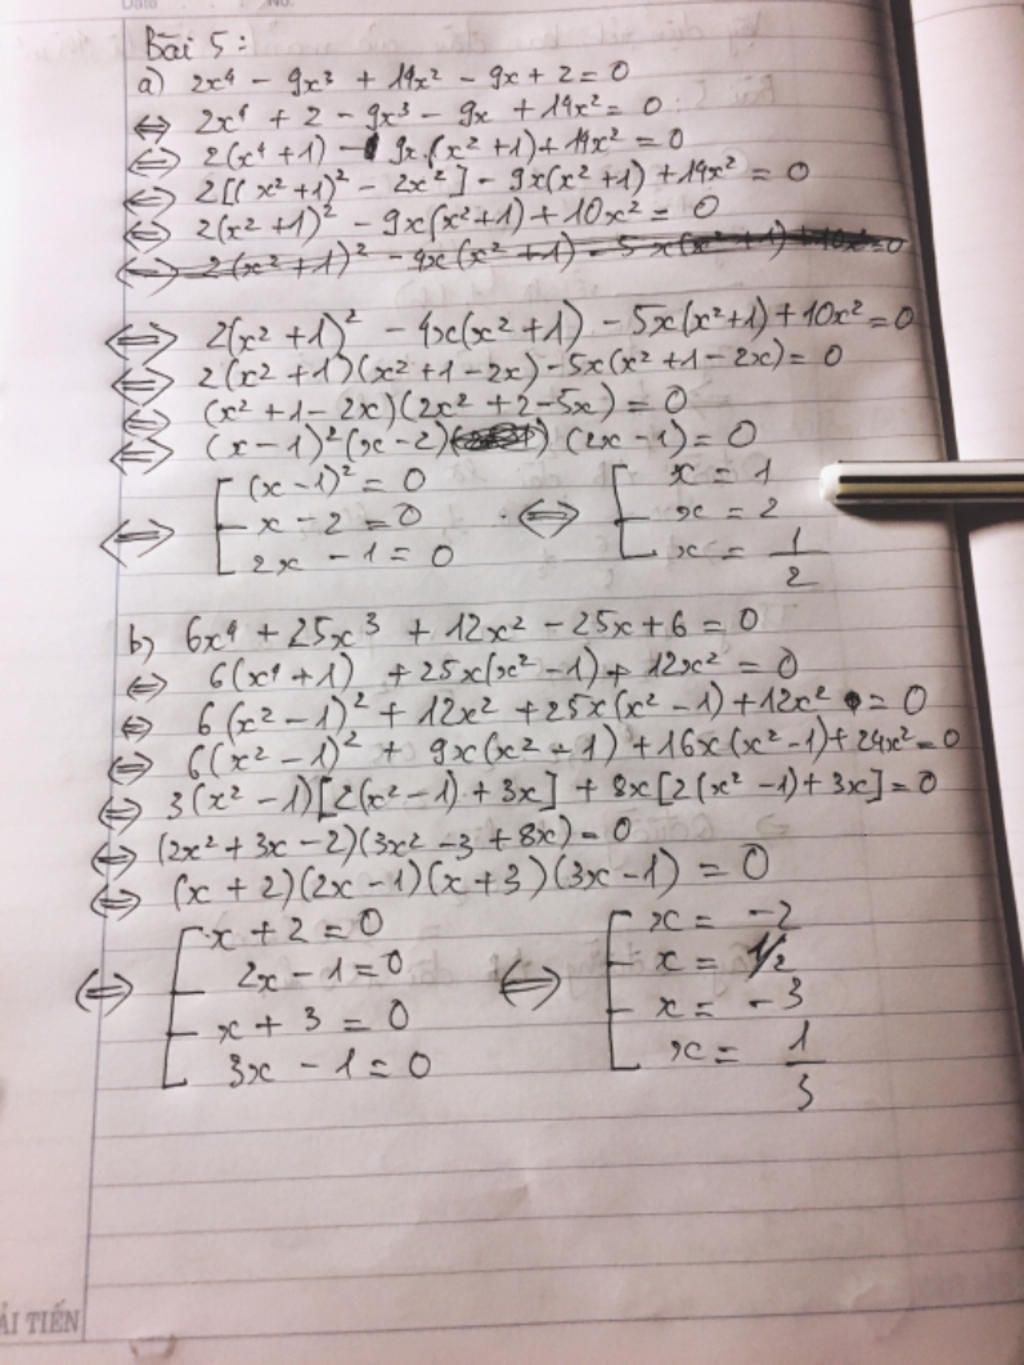 Date No.
Bài 5:
a) 2x⁴ - 9x³ + 14x² - 9x + 2 = 0
⇔ 2x⁴ + 2 - 9x³ - 9x + 14x² = 0
⇔ 2(x⁴ + 1) - 9x.(x² + 1) + 14x² = 0
⇔ 2[(x² + 1)² - 2x²] - 9x(x² + 1) + 14x² = 0
⇔ 2(x² + 1)² - 9x(x² + 1) + 10x² = 0
⇔ 2(x² + 1)² - 4x(x² + 1) - 5x(x² + 1) + 10x² = 0
⇔ 2(x² + 1)² - 4x(x² + 1) - 5x(x² + 1) + 10x² = 0
⇔ 2(x² + 1)(x² + 1 - 2x) - 5x(x² + 1 - 2x) = 0
⇔ (x² + 1 - 2x)(2x² + 2 - 5x) = 0
⇔ (x - 1)²(x - 2) (2x - 1) = 0
⇔ [ (x - 1)² = 0 ⇔ [ x = 1
x - 2 = 0 x = 2
2x - 1 = 0 x = 1/2
b) 6x⁴ + 25x³ + 12x² - 25x + 6 = 0
⇔ 6(x⁴ + 1) + 25x(x² - 1) + 12x² = 0
⇔ 6(x² - 1)² + 12x² + 25x(x² - 1) + 12x² = 0
⇔ 6(x² - 1)² + 9x(x² - 1) + 16x(x² - 1) + 24x² = 0
⇔ 3(x² - 1)[2(x² - 1) + 3x] + 8x[2(x² - 1) + 3x] = 0
⇔ (2x² + 3x - 2)(3x² - 3 + 8x) = 0
⇔ (x + 2)(2x - 1)(x + 3)(3x - 1) = 0
⇔ [ x + 2 = 0 ⇔ [ x = -2
2x - 1 = 0 x = 1/2
x + 3 = 0 x = -3
3x - 1 = 0 x = 1/3
ẢI TIẾN